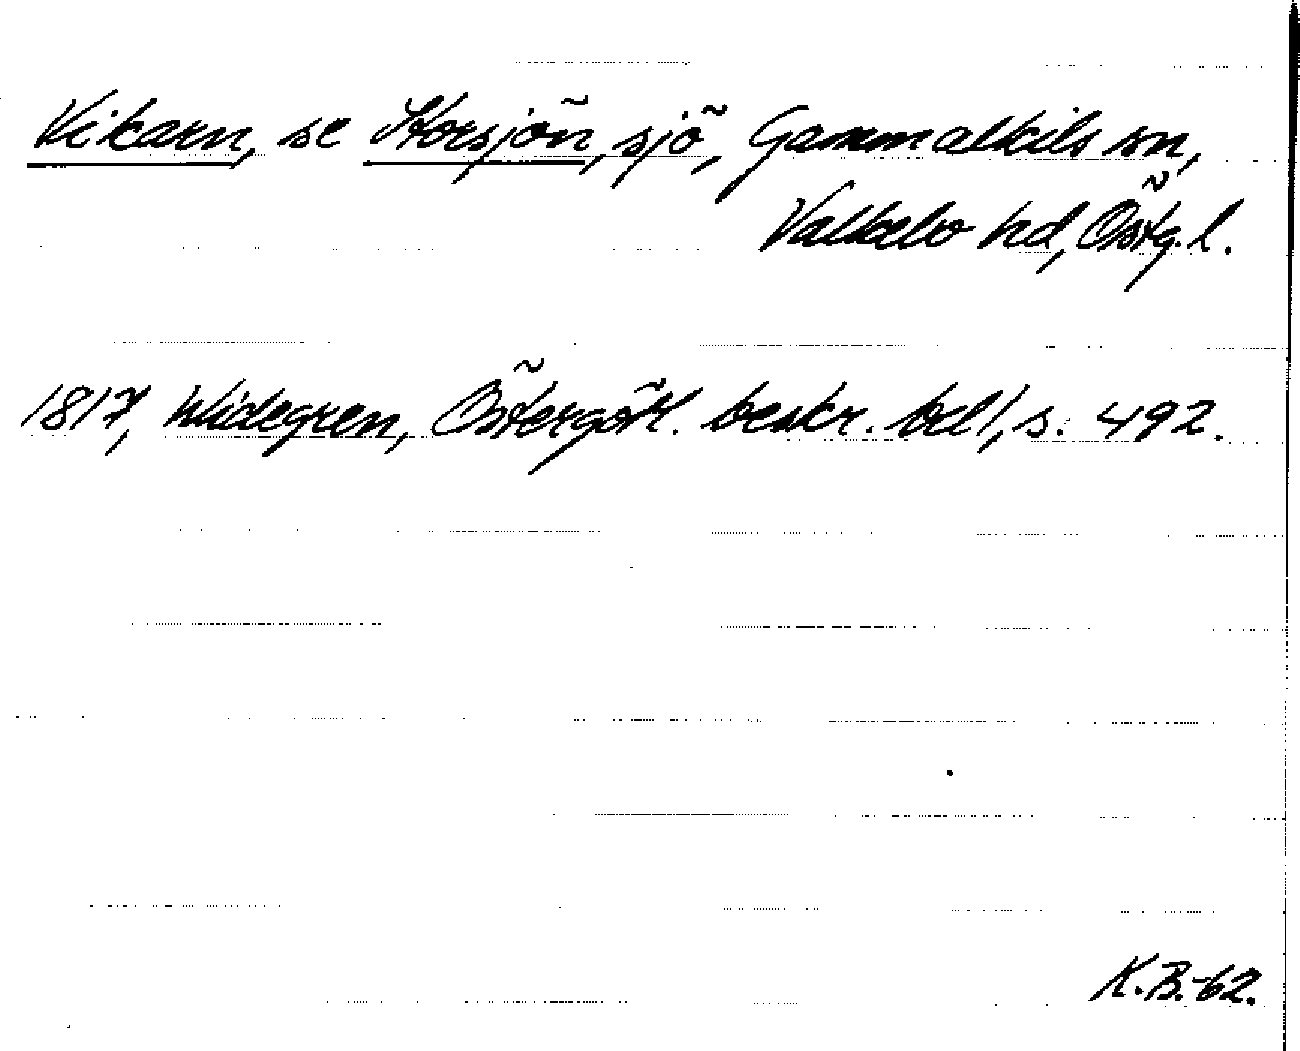 Vikarn, se Storsjön, sjö, Gammalkils sn,
Valkebo hd, Östg. l.
1817, Widegren, Östergötl. beskr. bd 1, s. 492.
K.B.-62.